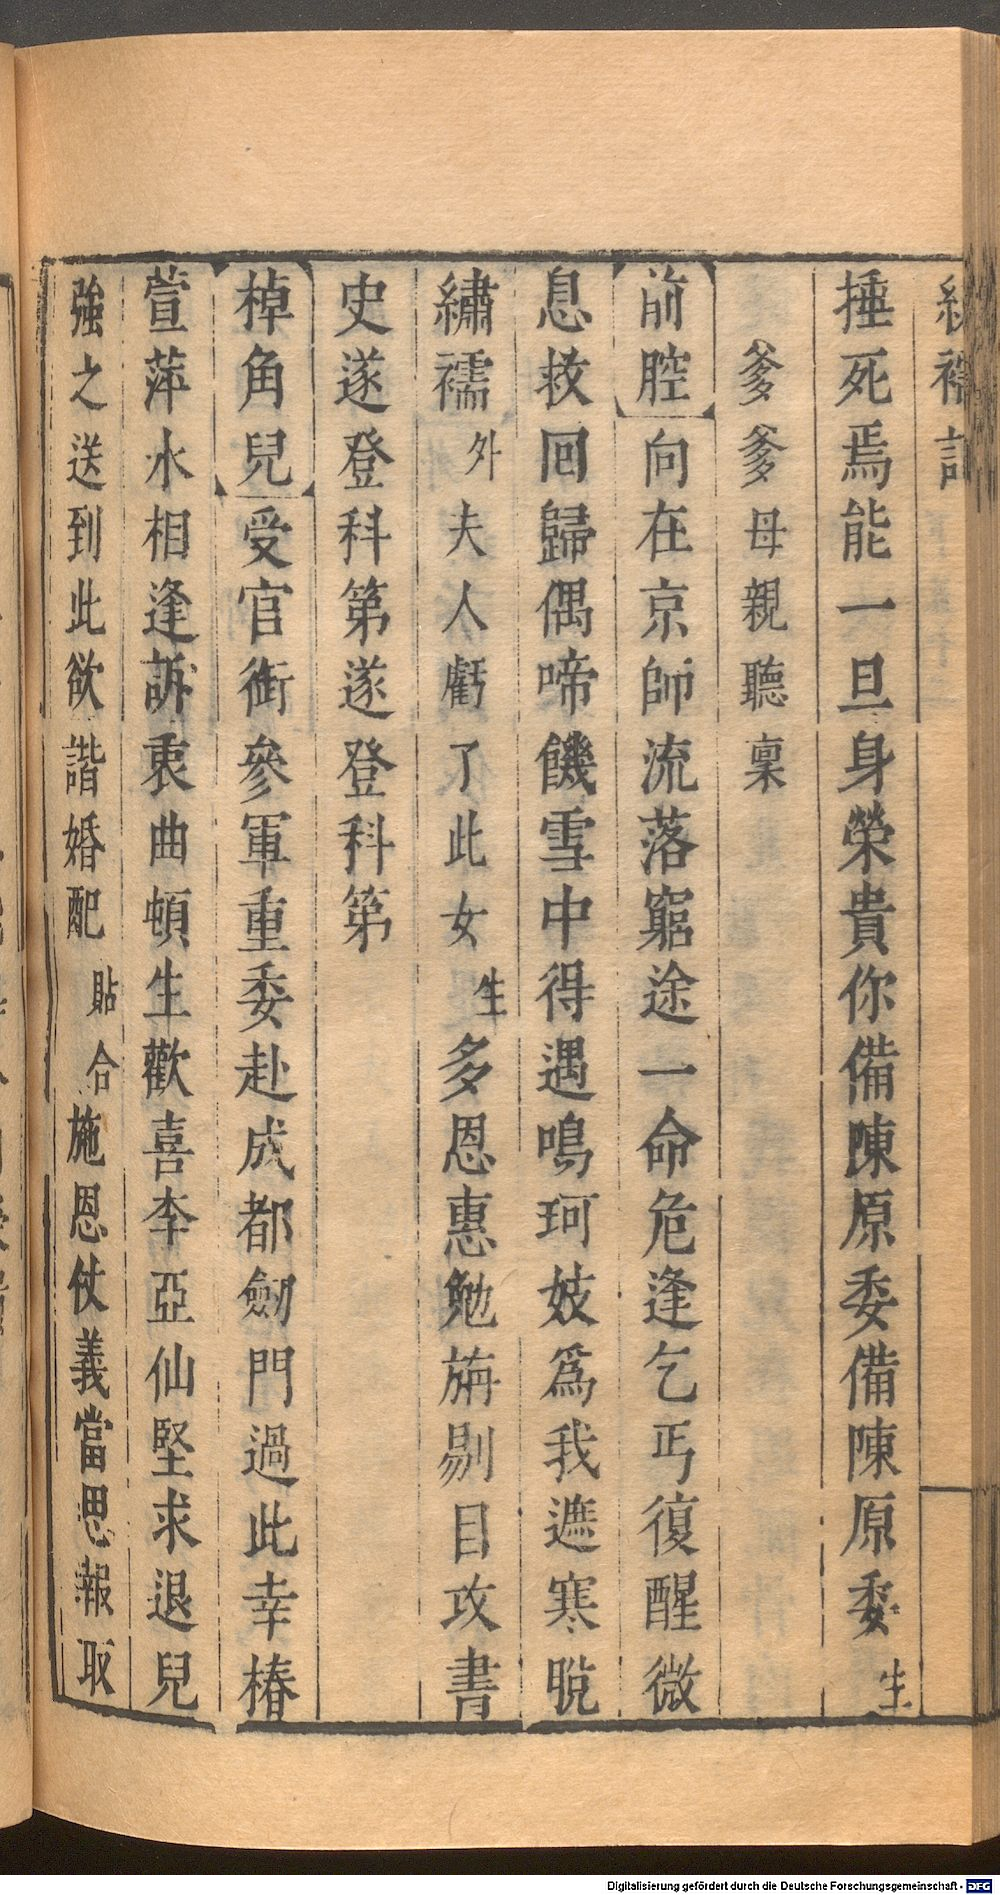 繡襦記
捶死焉能一旦身榮貴你備陳原委備陳原委生
爹爹母親聽稟
前腔向在京師流落窮途一命危逢乞丐復醒微
息救回歸偶啼饑雪中得遇鳴珂妓爲我遮寒脫
繡襦外夫人虧了此女生多恩惠勉旃剔目攻書
史遂登科第遂登科第
棹角兒受官銜參軍重委赴成都劒門過此幸椿
萱萍水相逢訴衷曲頓生歡喜李亞仙堅求退兒
強之送到此欲諧婚配貼合施恩仗義當思報取
Digitalisierung gefördert durch die Deutsche Forschungsgemeinschaft - DFG